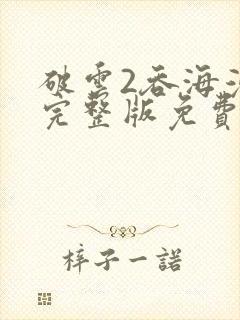 破雲2吞海
完整版免費
梓子一諾